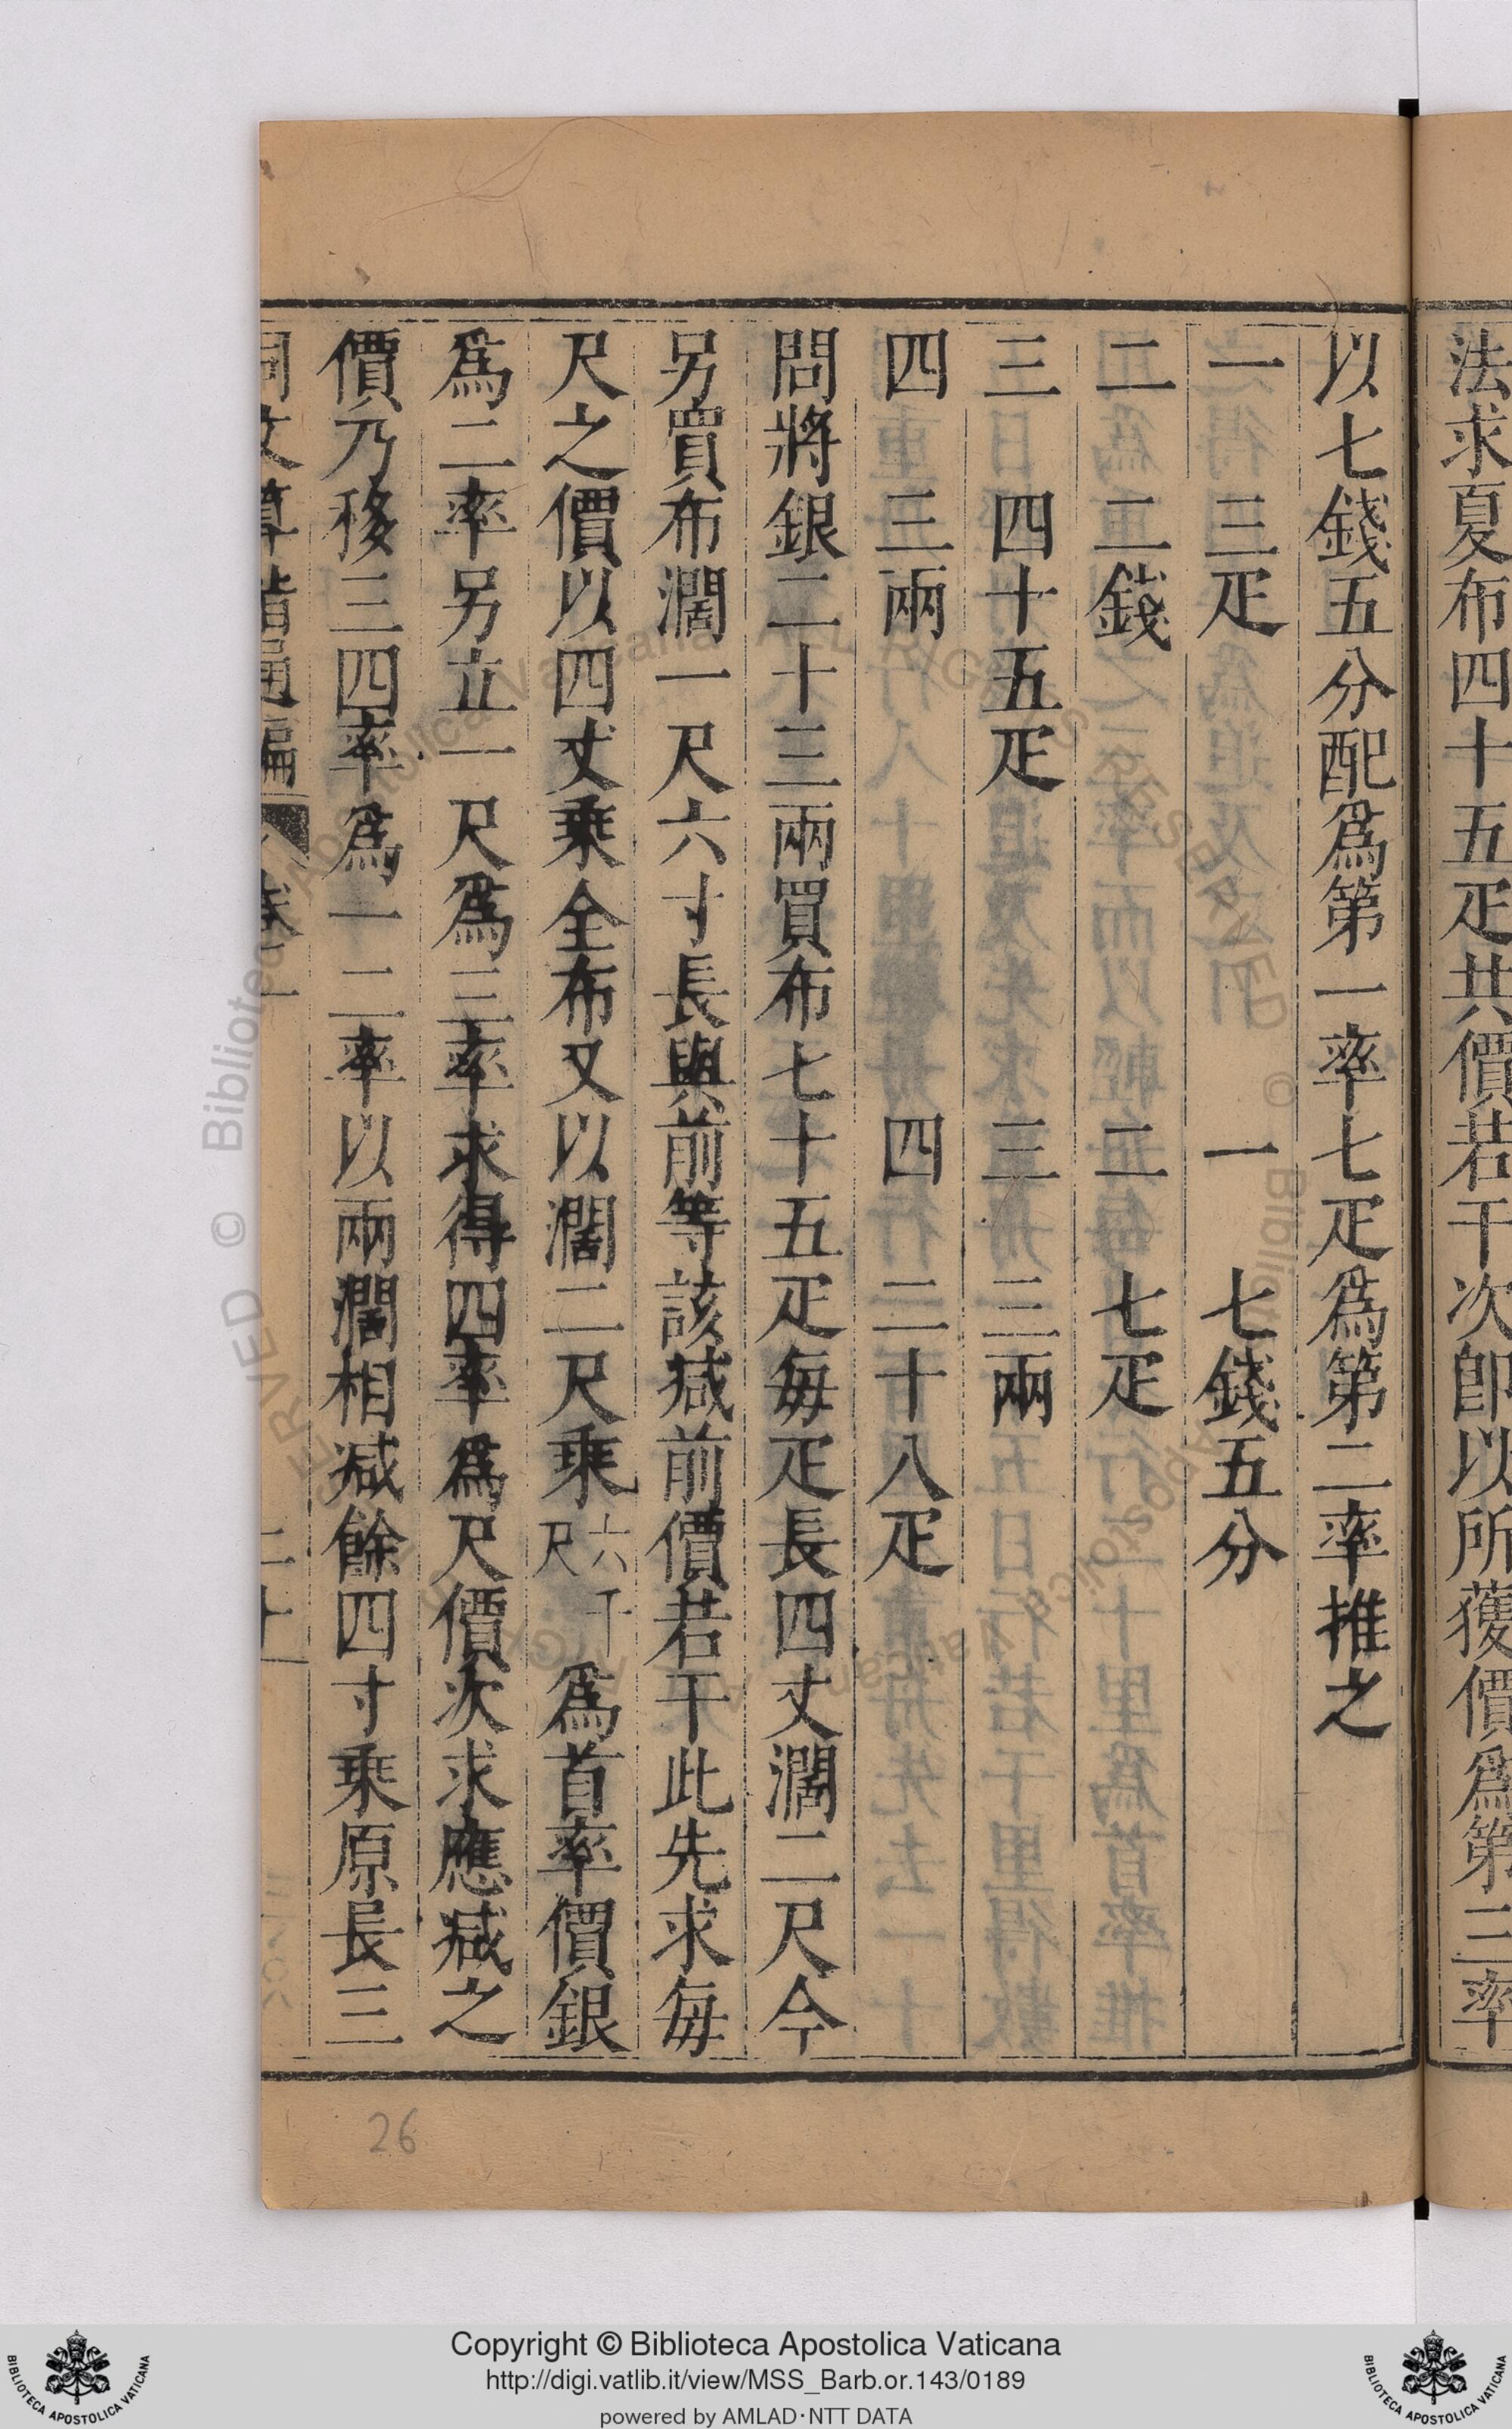 法求夏布四十五疋共價若干次卽以所獲價爲第三率
以七錢五分配爲第一率七疋爲第二率推之
一　三疋　一　七錢五分
二　二錢　二　七疋
三　四十五疋　三　三兩
四　三兩　四　二十八疋
問將銀二十三兩買布七十五疋每疋長四丈濶二尺今
另買布濶一尺六寸長與前等該減前價若干此先求每
尺之價以四丈乘全布又以濶二尺乘六千尺爲首率價銀
爲二率另立一尺爲三率求得四率爲尺價次求應減之
價乃移三四率爲一二率以兩濶相減餘四寸乘原長三
同文算指通編　卷二　二十
26
Copyright © Biblioteca Apostolica Vaticana
http://digi.vatlib.it/view/MSS_Barb.or.143/0189
powered by AMLAD·NTT DATA
BIBLIOTECA APOSTOLICA VATICANA
BIBLIOTECA APOSTOLICA VATICANA